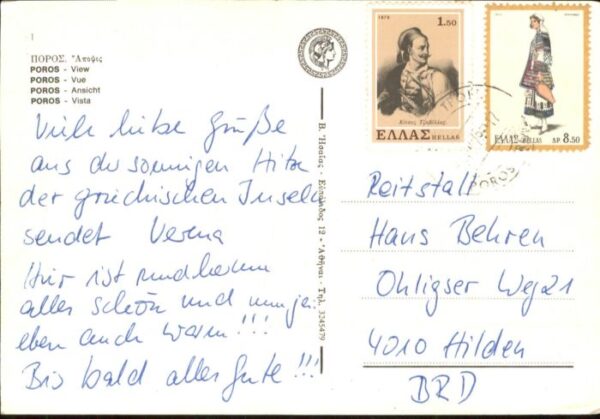 1
ΠΟΡΟΣ. Ἄποψις
POROS - View
POROS - Vue
POROS - Ansicht
POROS - Vista
Viele liebe Grüße
aus der sonnigen Hitze
der griechischen Inseln
sendet Verena
Hier ist rundherum
alles schön und
eben auch warm!!!
Bis bald alles Gute!!!
12 - Ἀθῆναι - Τηλ. 3245479
1979
1.50
Κίτσος Τζαβέλλας
ΕΛΛΑΣ HELLAS
ΕΛΛΑΣ-HELLAS ΔΡ 8.50
POROS
Reitstall
Hans Behren
Ohligser Weg 21
4010 Hilden
BRD